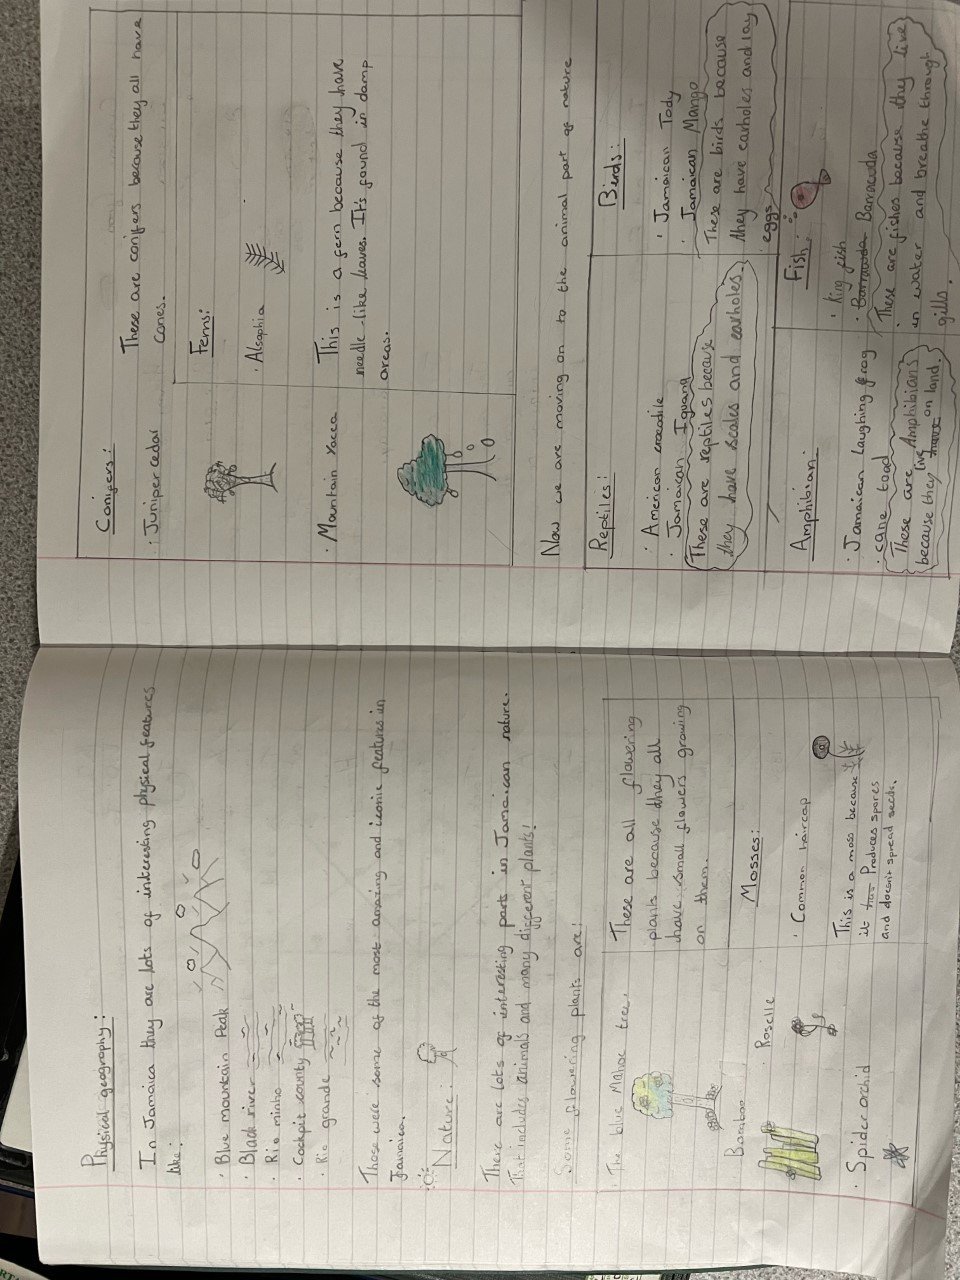 Physical geography:
In Jamaica they are lots of interesting physical features
like:
· Blue mountain Peak
· Black river
· Rio minho
· Cockpit county
· Rio grande
Those were some of the most amazing and iconic features in
Jamaica.
Nature:
There are lots of interesting parts in Jamaican nature.
That includes animals and many different plants!
Some flowering plants are!
· The blue Mahoe tree.
Bamboo
Roselle
· Spider orchid
These are all flowering
plants because they all
have small flowers growing
on them.
Mosses:
· Common haircap
This is a moss because
it has Produces spores
and doesn't spread seeds.
Conifers:
· Juniper cedar
These are conifers because they all have
cones.
· Mountain Yacca
Ferns:
· Alsophia
This is a fern because they have
needle-like leaves. It's found in damp
areas.
Now we are moving on to the animal part of nature
Reptiles:
· American crocodile
· Jamaican Iguana
These are reptiles because
they have scales and earholes.
Birds:
· Jamaican Tody
· Jamaican Mango
These are birds because
they have earholes and lay
eggs
Amphibian:
· Jamaican Laughing frog
· cane toad
These are Amphibians
because they live on land.
Fish:
· King fish
· Barracuda Barracuda
These are fishes because they live
in water and breathe through
gills.